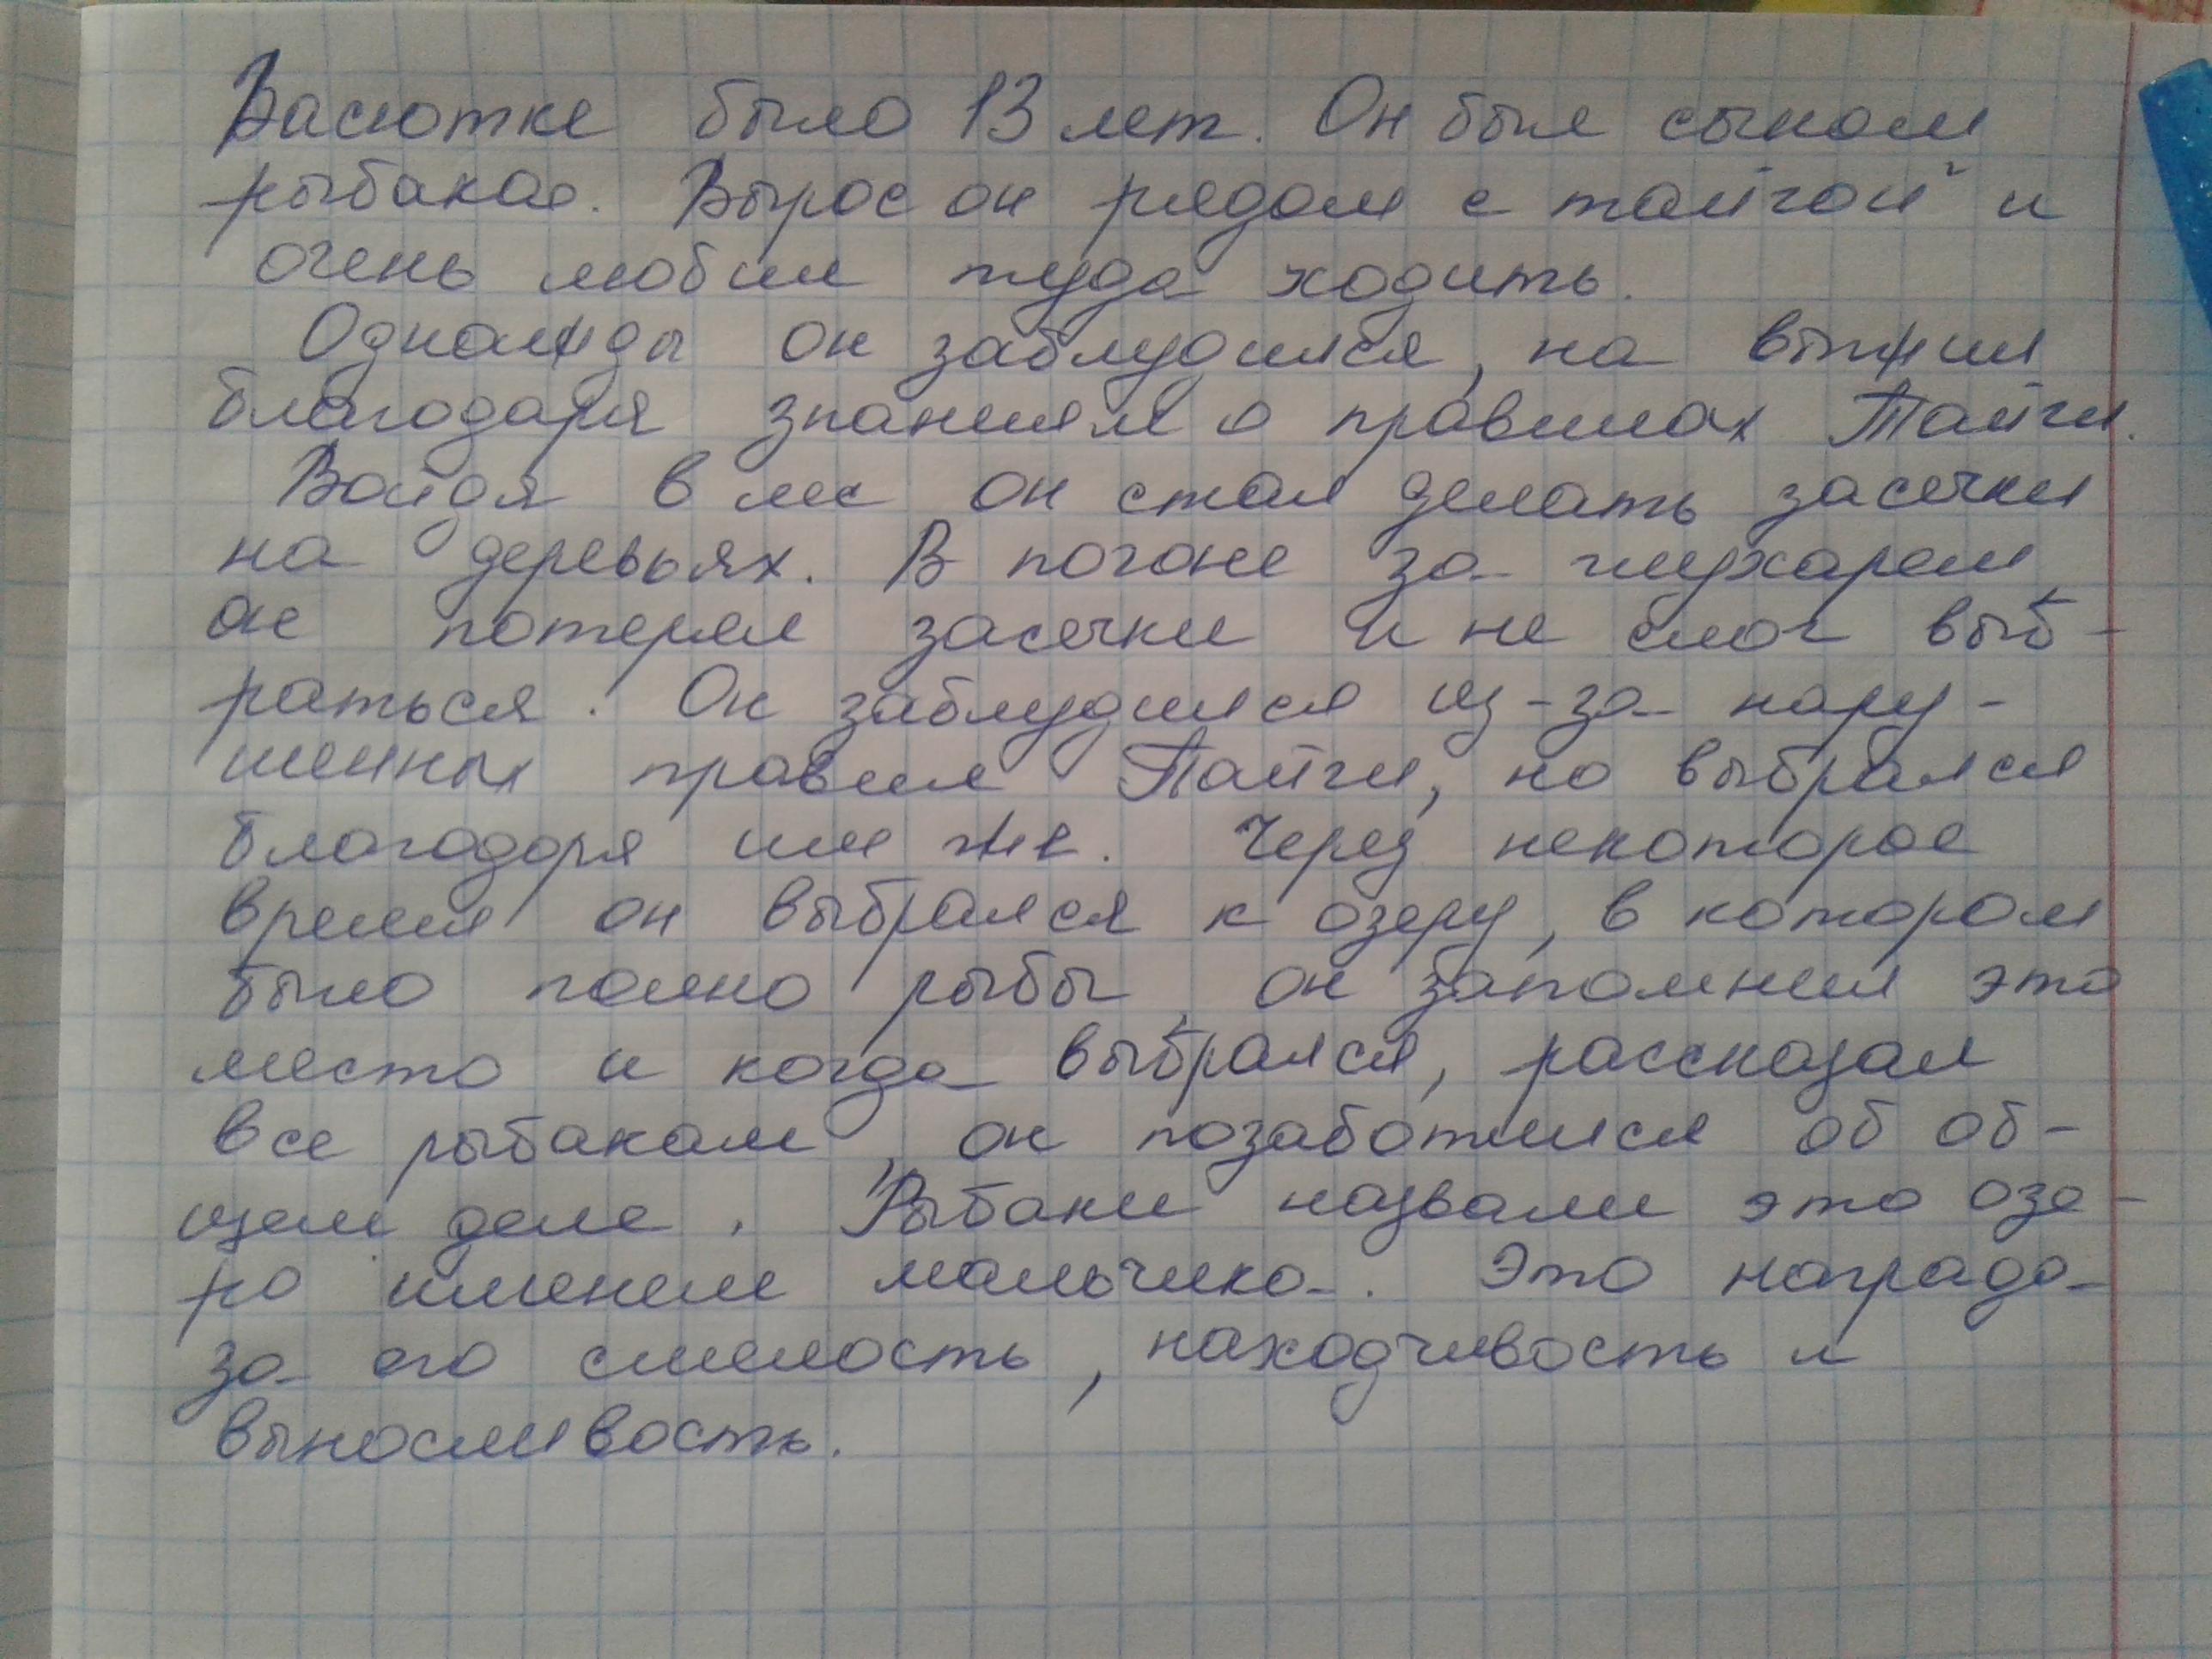 Васютке было 13 лет. Он был сыном
рыбака. Вырос он рядом с тайгой и
очень любил туда ходить.
Однажды он заблудился, на выжил
благодаря знаниям о правилах Тайги.
Войдя в лес он стал делать засечки
на деревьях. В погоне за глухарем
он потерял засечки и не смог выб-
раться. Он заблудился из-за нару-
шенных правил Тайги, но выбрался
благодоря им же. Через некоторое
время он выбрался к озеру, в котором
было полно рыбы, он запомнил это
место и когда выбрался, рассказал
все рыбакам, он позаботился об об-
щем деле. Рыбаки назвали это озе-
ро именем мальчика. Это награда
за его смелость, находчивость и
выносливость.